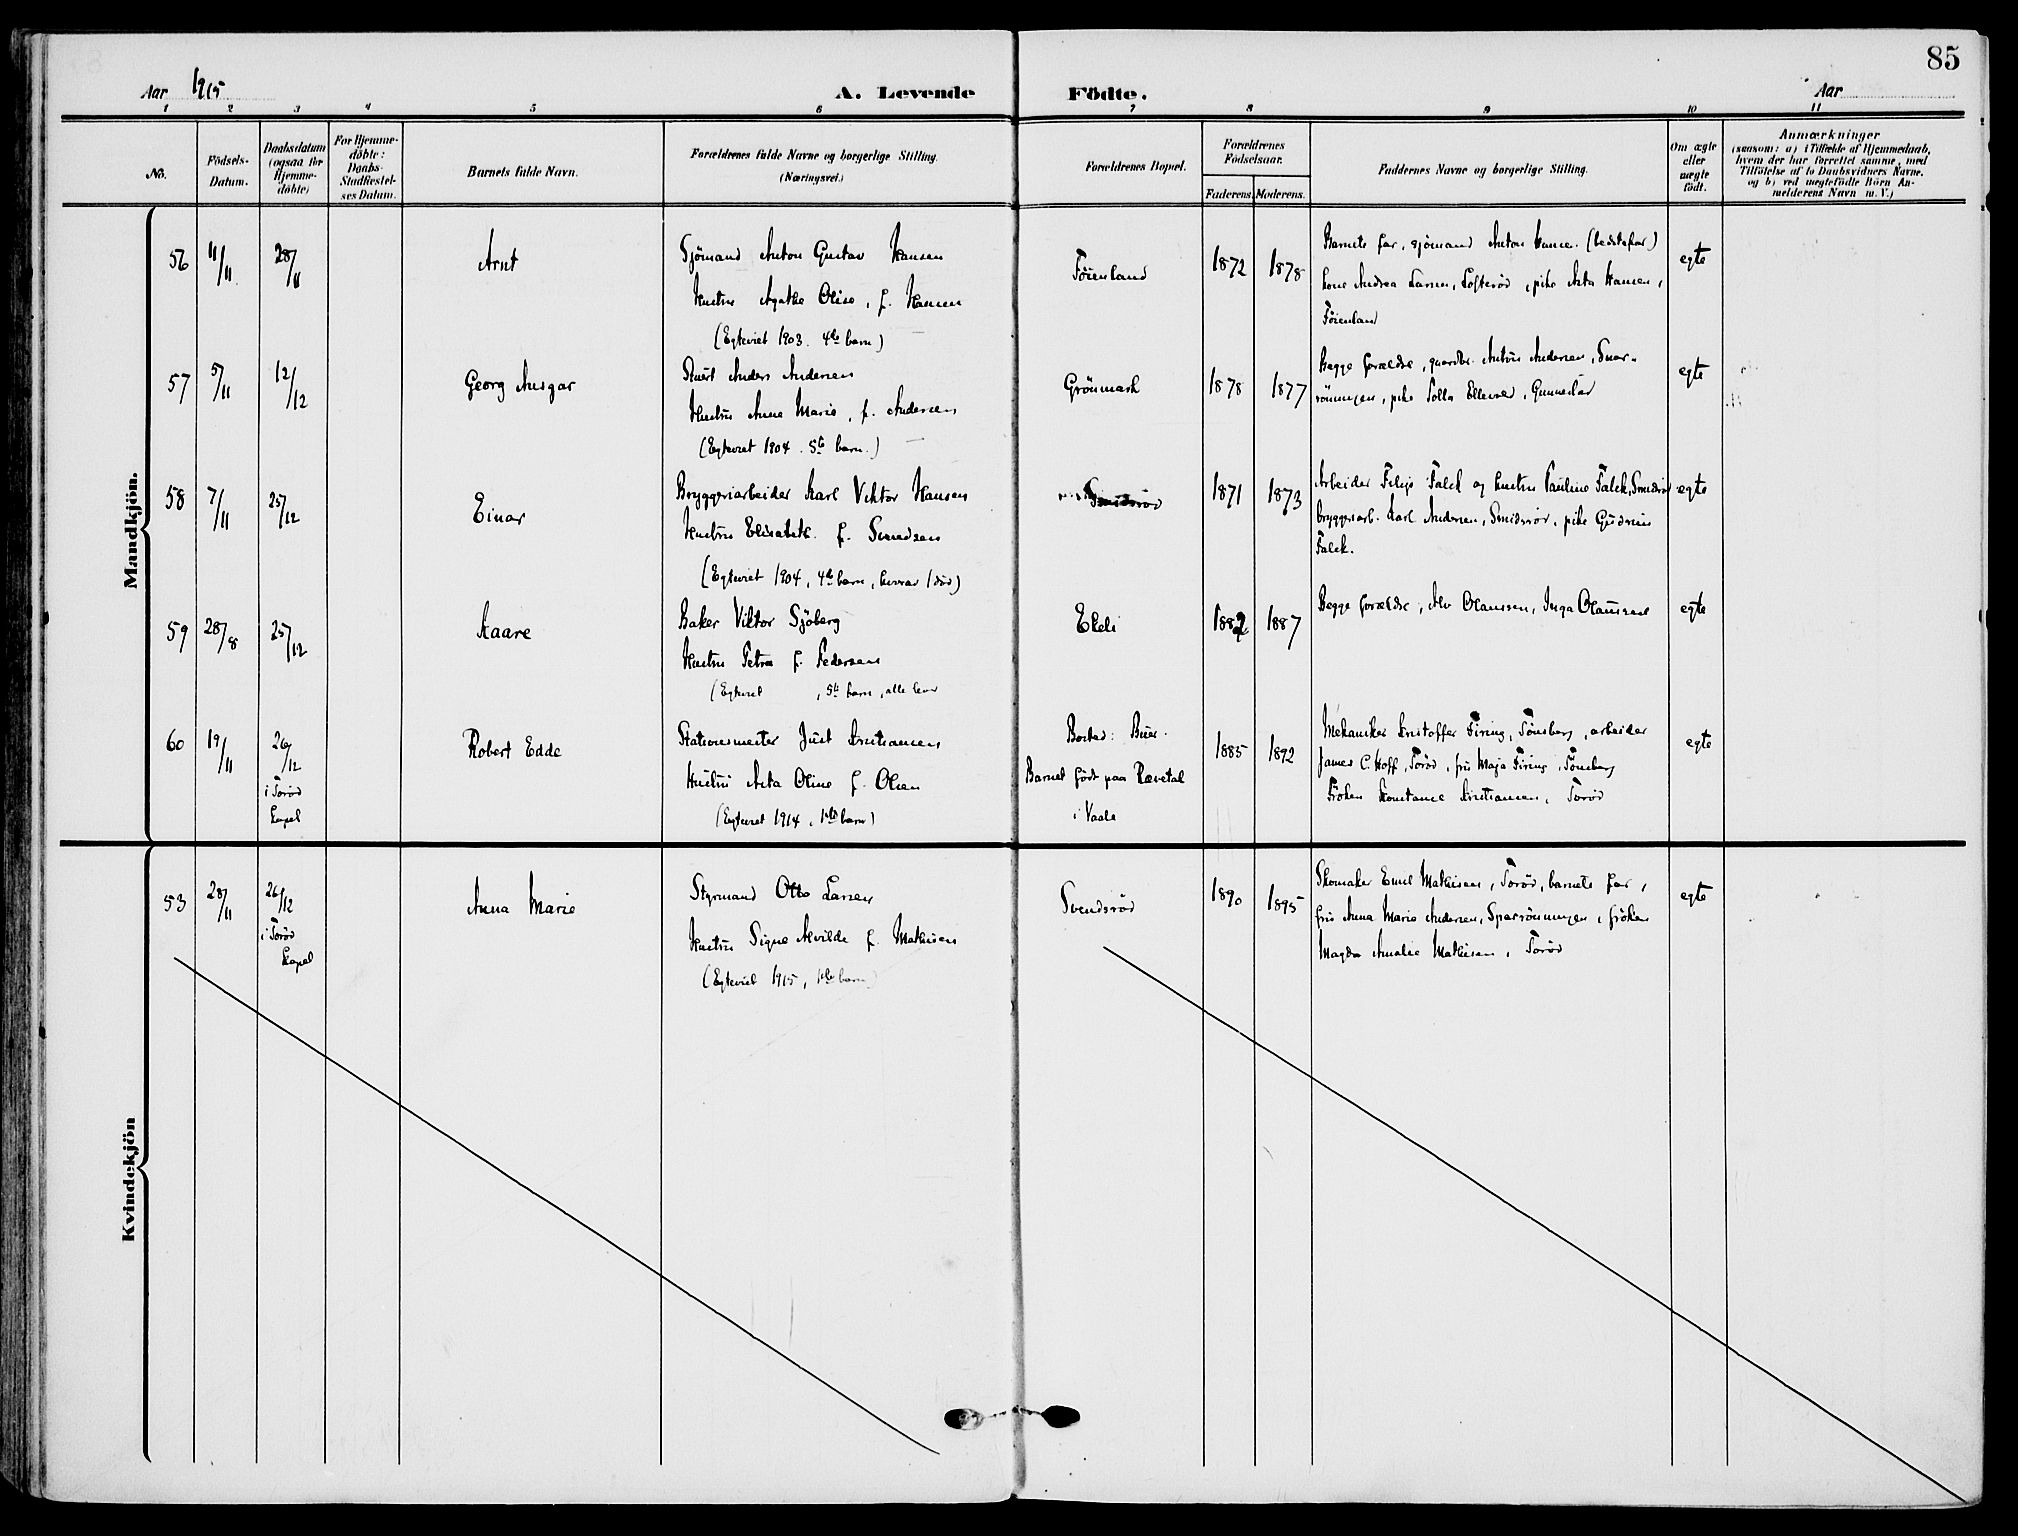 85
Aar 1915
A. Levende
Födte.
Aar
1 2 3 4 5 6 7 8 9 10 11
No.
Födsels-
Datum.
Daabsdatum
(ogsaa for
Hjemme-
döbte)
For Hjemme-
döbte:
Daabs-
Stadfæstel-
ses Datum.
Barnets fulde Navn.
Forældrenes fulde Navne og borgerlige Stilling.
(Næringsvei.)
Forældrenes Bopæl.
Forældrenes
Födselsaar.
Faderens. Moderens.
Faddernes Navne og borgerlige Stilling.
Om ægte
eller
uægte
födt.
Anmærkninger
(saasom: a) i Tilfælde af Hjemmedaab,
hvem der har forrettet samme, med
Tilföielse af to Daabsvidners Navne,
og b) ved uægtefödte Börn An-
melderens Navn m. V.)
Mandkjön.
56 11/11 28/11 Arnt
Sjömand Anton Gustav Hansen
Hustru Agathe Oline, f. Hansen
(Egteviet 1903. 4de barn)
Föienland 1872 1878
Barnets far, sjömand Anton Hansen (bedstefar)
kone Andrea Larsen, Lofteröd, pike Asta Hansen,
Föienland
egte
57 5/11 12/12 Georg Ansgar
Anders Andersen
Hustru Anna Marie, f. Andersen
(Egteviet 1904. 5te barn.)
Grönmark 1878 1877
Begge forældre, gaardbr. Anton Andersen,
pike Ellevsed, Gunnestad
egte
58 7/11 25/12 Einar
Bryggeriarbeider Karl Viktor Hansen
Hustru Elisabeth f. Svendsen
(Egteviet 1904, 4de barn, hvorav 1 död)
Smidsröd 1871 1873
Arbeider Filip Falck og hustru Pauline Falck, Smidsröd
bryggeriarb. Karl Andersen, Smidsröd, pike Gudrun
Falck.
egte
59 28/8 25/12 Kaare
Baker Viktor Sjöberg
Hustru Petra f. Pedersen
(Egteviet , 5te barn, alle lever
Ekeli 1882 1887
Begge forældre, Alv Olaussen, Inga Olaussen
egte
60 19/11 26/12
i Toröd
Kapel
Robert Edde
Stationsmester Just Kristiansen
Hustru Asta Oline f. Olsen
(Egteviet 1914, 1ste barn)
Bosted: Buer.
Barnet födt paa Rævetal
i Vaale
1885 1892
Mekaniker Kristoffer Firing, Tönsberg, arbeider
James C. Hoff, Toröd, fru Maja Firing, Tönsberg
Fröken Konstance Kristiansen, Toröd
egte
Kvindekjön
53 28/11 26/12
i Toröd
Kapel
Anna Marie
Styrmand Otto Larsen
Hustru Signe Alvilde f. Mathisen
(Egteviet 1915, 1ste barn)
Svendsröd 1890 1895
Skomaker Emil Mathisen, Toröd, barnets far,
fru Anna Marie Andersen, Sparrönningen, fröken
Magda Amalie Mathisen, Toröd
egte